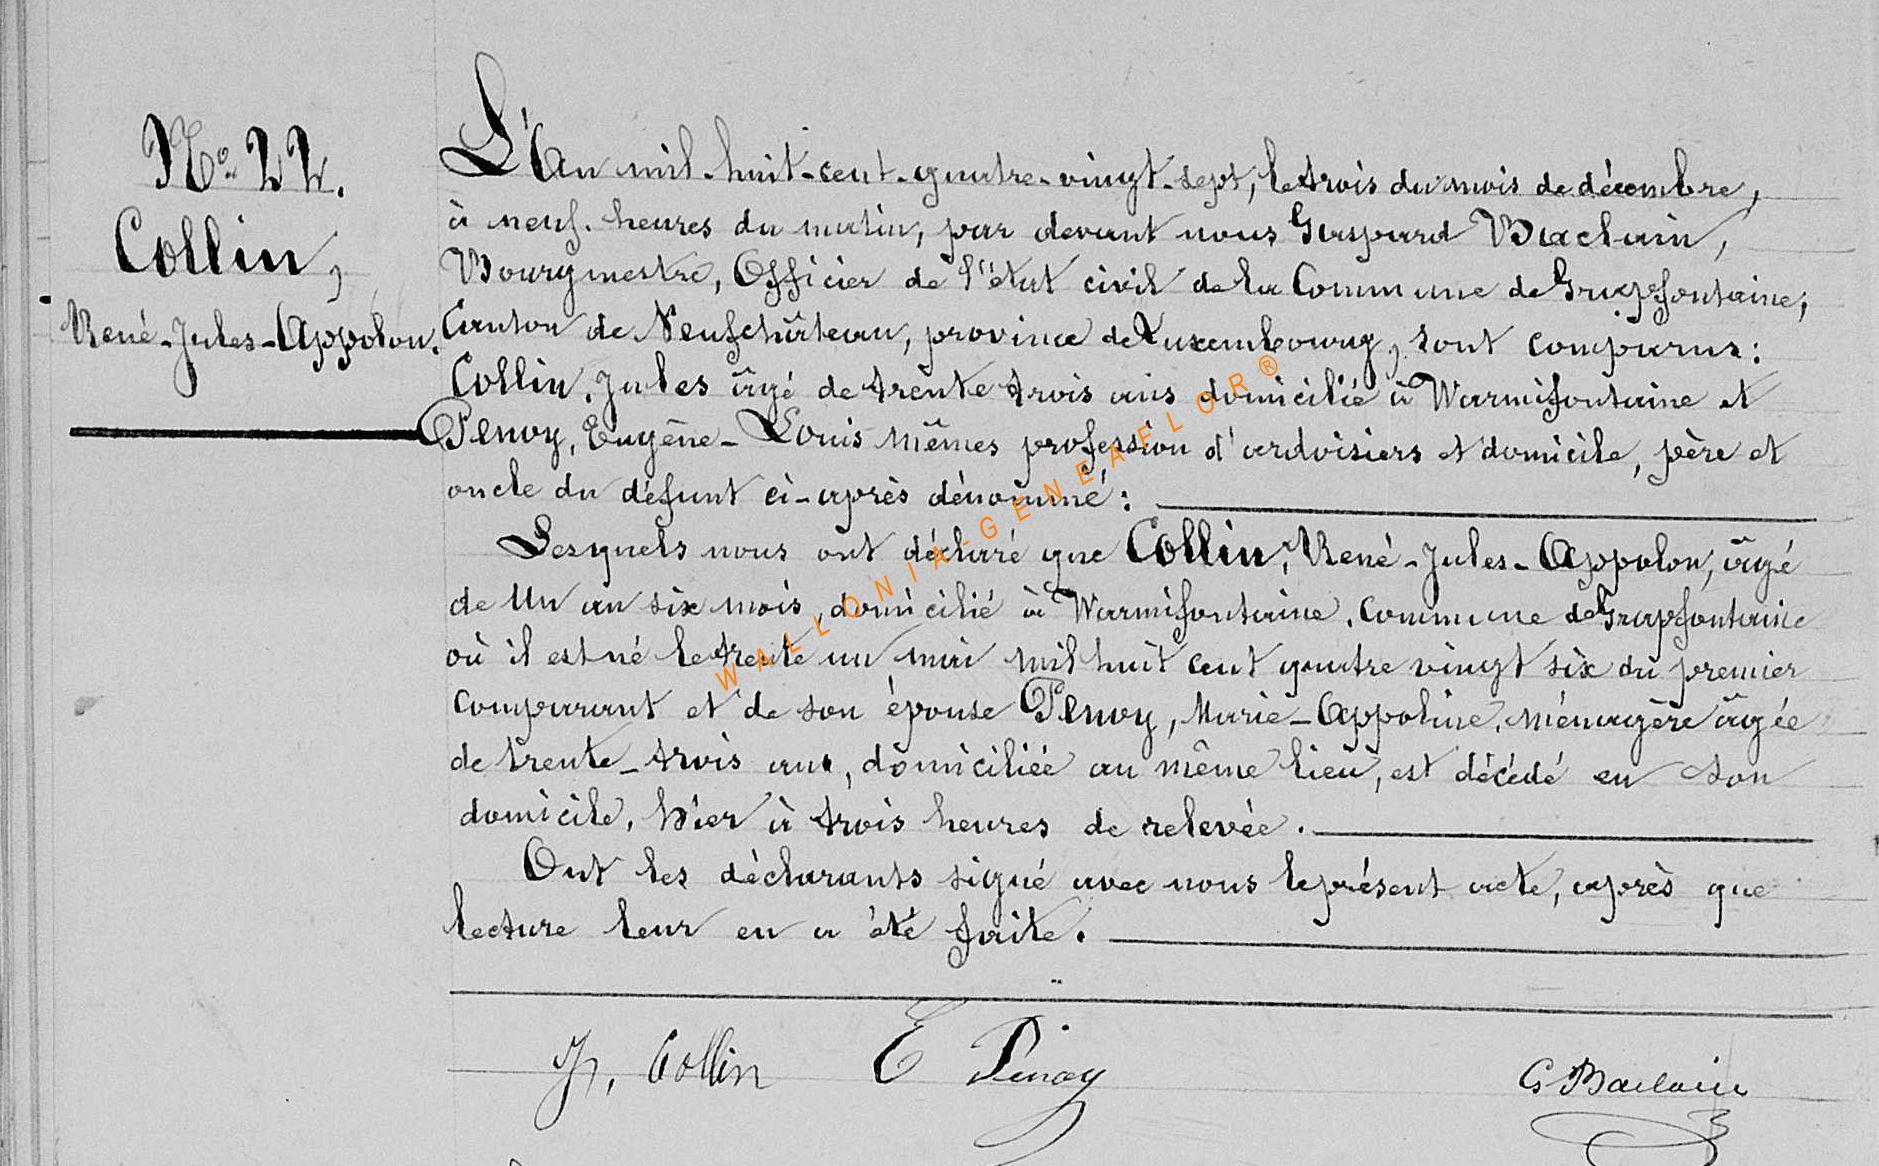 No 22.
Collin,
René-Jules-Appolon.
L'An mil-huit-cent-quatre-vingt-sept, le trois du mois de décembre,
à neuf heures du matin, par devant nous Gaspard Baclain,
Bourgmestre, Officier de l'état civil de la Commune de Grapfontaine,
Canton de Neufchâteau, province de Luxembourg, sont comparus:
Collin, Jules âgé de trente trois ans domicilié à Warmifontaine et
Penoy, Eugêne-Louis mêmes profession d'ardoisiers et domicile, père et
oncle du défunt ci-après dénommé:
Lesquels nous ont déclaré que Collin, René-Jules-Appolon, âgé
de Un an six mois, domicilié à Warmifontaine, Commune de Grapfontaine
où il est né le trente un mai mil huit cent quatre vingt six du premier
comparant et de son épouse Penoy, Marie-Appoline, ménagère âgée
de trente-trois ans, domiciliée au même lieu, est décédé en son
domicile, hier à trois heures de relevée.
Ont les déclarants signé avec nous le présent acte, après que
lecture leur en a été faite.
J, Collin E Penoy G Baclain
WALLONIA-GENEAFLOR®